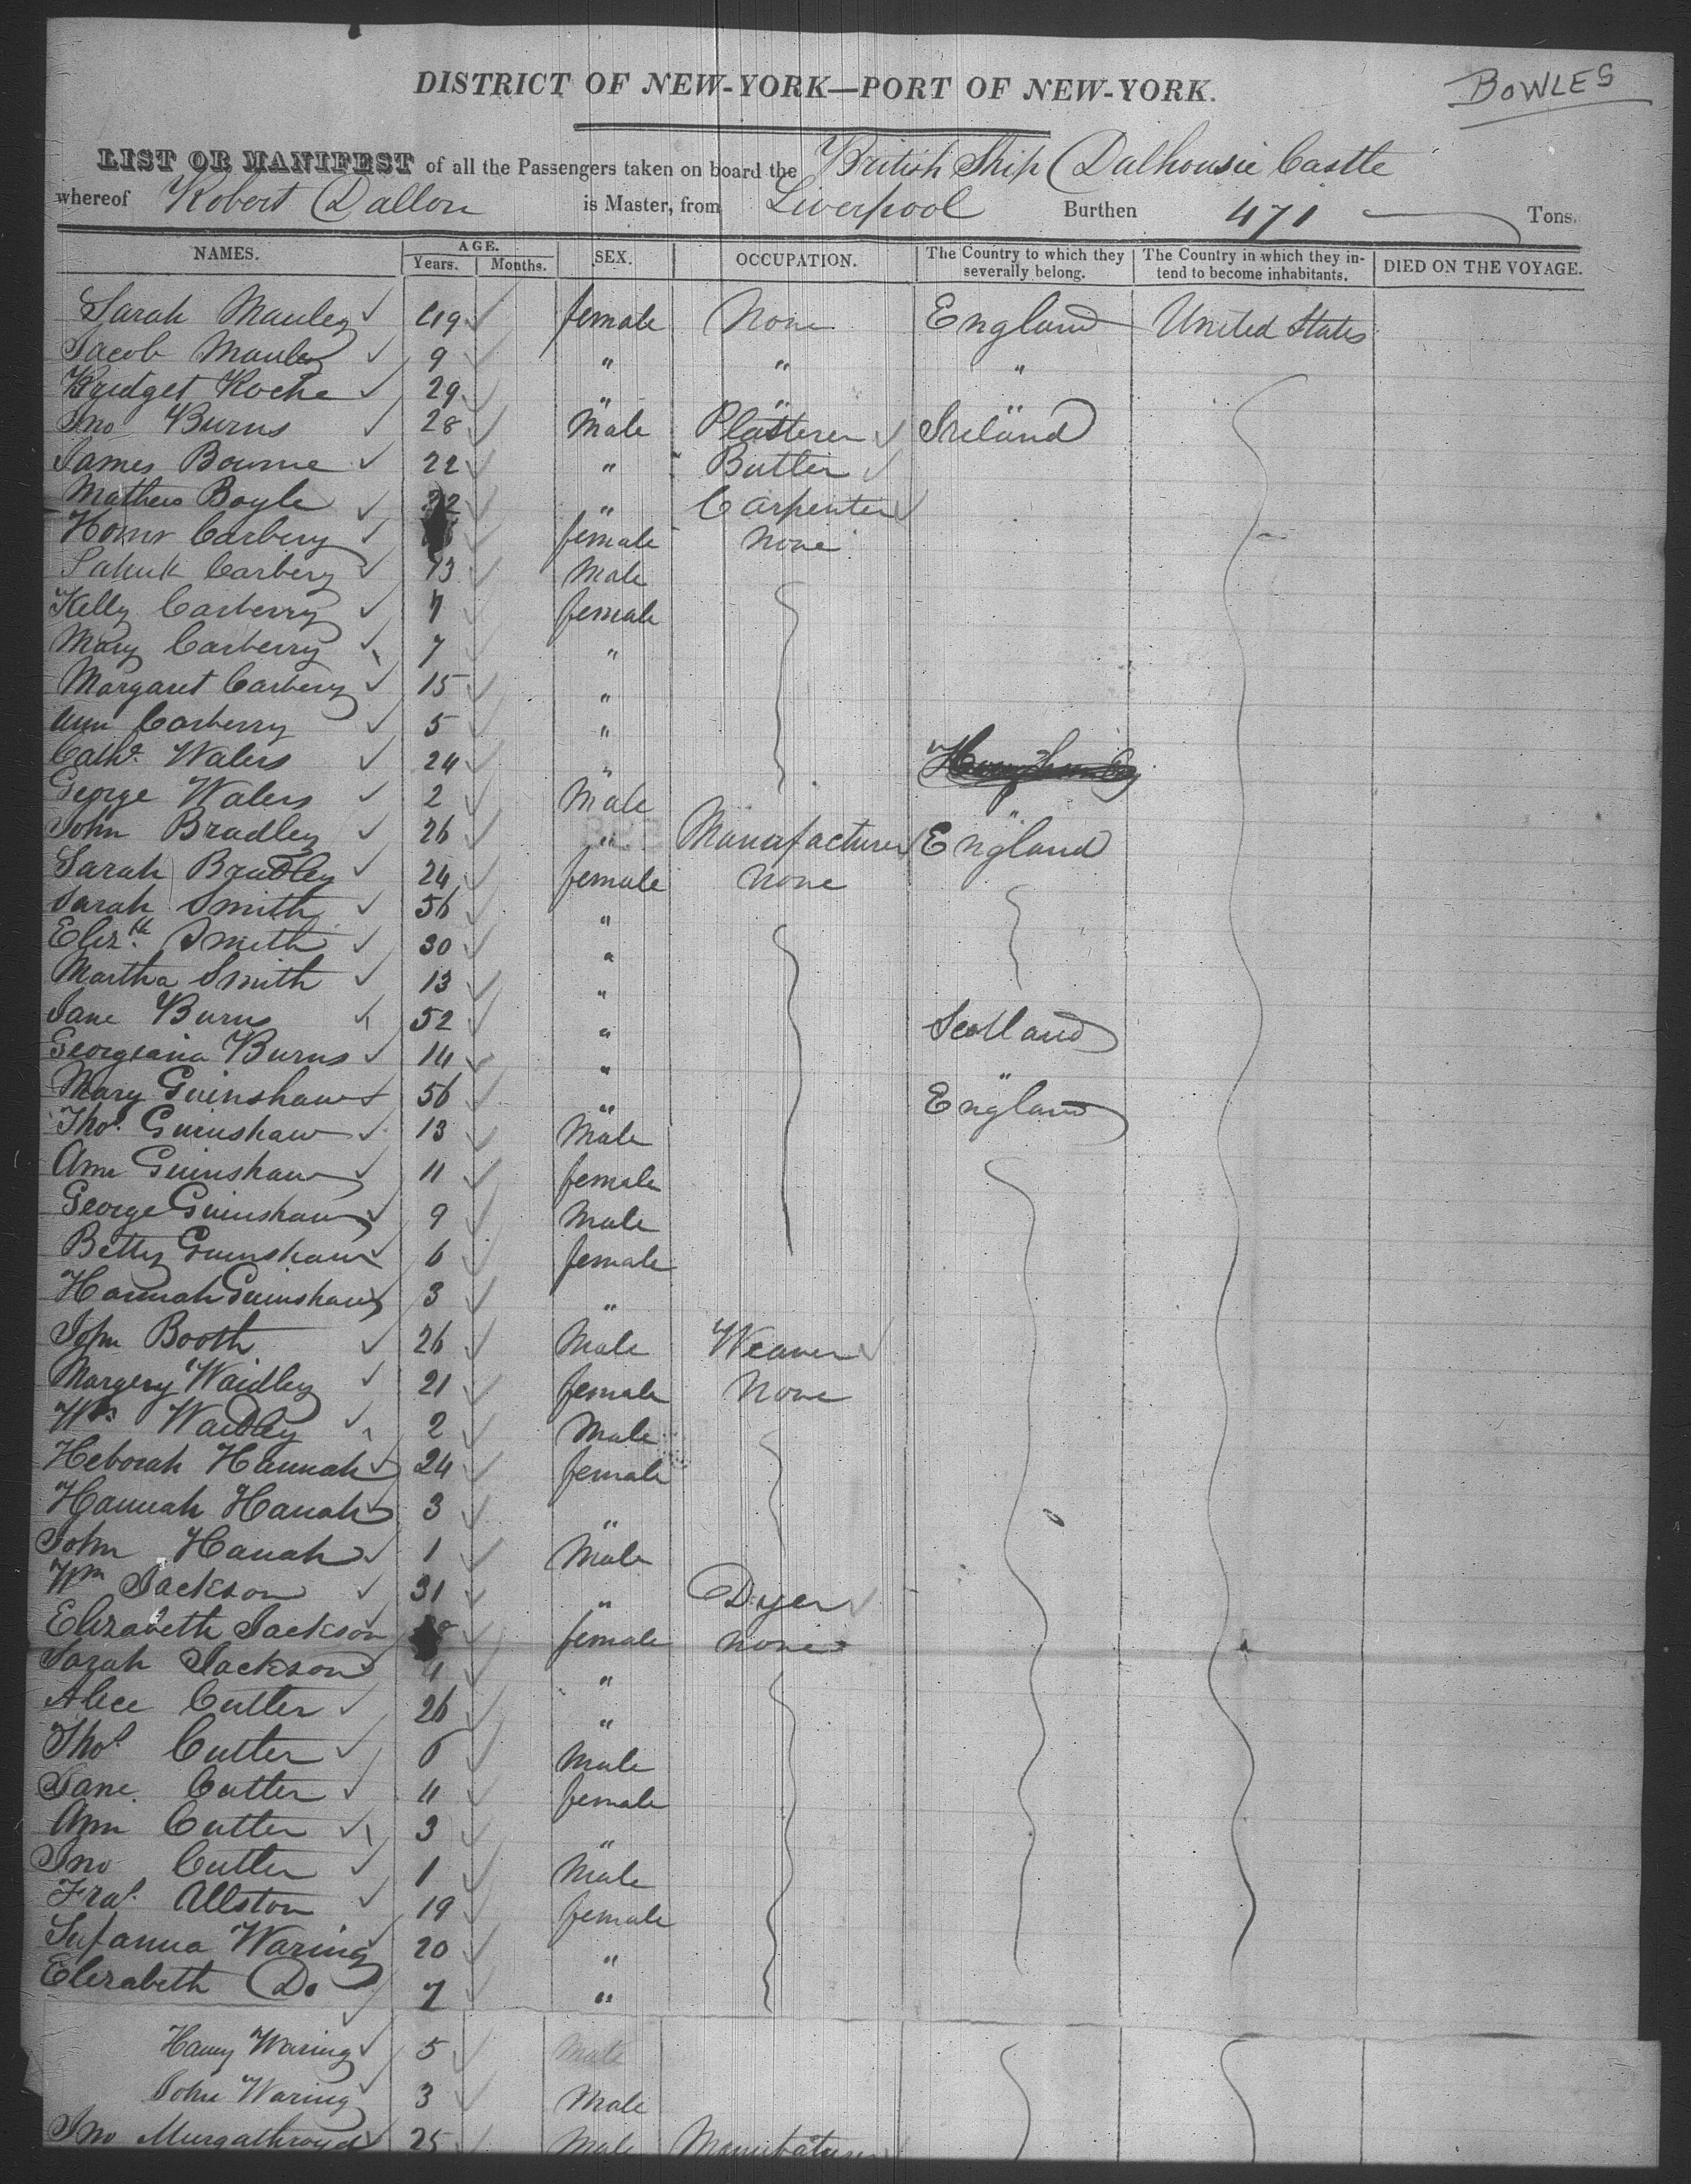 BOWLES
DISTRICT OF NEW-YORK—PORT OF NEW-YORK.
LIST OR MANIFEST of all the Passengers taken on board the British Ship Dalhousie Castle
whereof Robert Dallon is Master, from Liverpool Burthen 471 Tons.
NAMES. AGE. Years. Months. SEX. OCCUPATION. The Country to which they severally belong. The Country in which they intend to become inhabitants. DIED ON THE VOYAGE.
Sarah Manley 49 female None England United States
Jacob Manley 9 " " "
Bridget Roche 29 " "
Jno Burns 28 Male Plasterer Ireland
James Bourne 22 " Butler
Mathew Boyle 22 " Carpenter
Carbery female None
Carbery 13 Male
Kelly Carberry 7 female
Mary Carberry 7 "
Margaret Carbery 15 "
Ann Carberry 5 "
Cathe. Walers 24 "
George Walers 2 Male "
John Bradley 26 " Manufacturer England
Sarah Bradley 24 female None
Sarah Smith 56 "
Elizth. Smith 30 "
Martha Smith 13 "
Jane Burns 52 " Scotland
Georgiana Burns 14 " "
Mary Guinshaw 56 " England
Thos. Guinshaw 13 Male
Ann Guinshaw 11 female
George Guinshaw 9 Male
Betty Guinshaw 6 female
Hannah Guinshaw 3 "
John Booth 26 Male Weaver
Margery Waidley 21 female None
Wm Waidley 2 Male
Heborah Hannah 24 female
Hannah Hanah 3 "
John Hanah 1 Male
Wm Jackson 31 " Dyer
Elizabeth Jackson female none
Sarah Jackson 4 "
Alice Cutler 26 "
Thos. Cutler 6 Male
Jane Cutler 4 female
Ann Cutler 3 "
Jno Cutler 1 Male
Fras. Allston 19 female
Susanna Waring 20 "
Elizabeth Do 7 "
Waring 5 Male
John Waring 3 Male
Jno Murgathroyd 25 Male Manufacturer